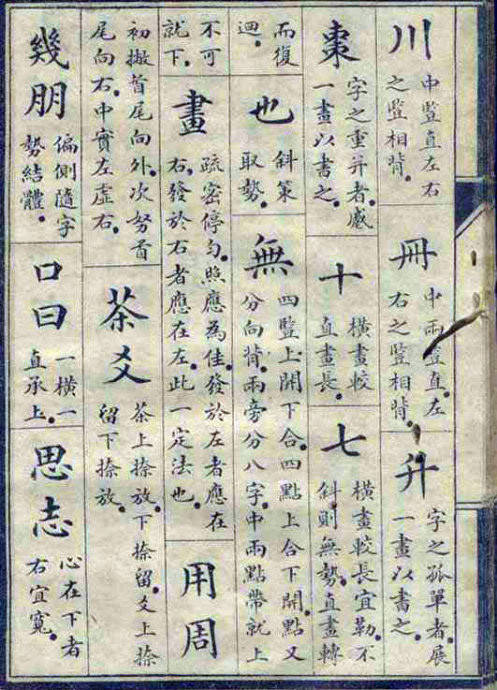 川
中豎直左右
之豎相背。
冊
中兩豎直。左
右之豎相背。
升
字之孤單者。展
一畫以書之。
棗
字之重并者。感
一畫以書之。
十
橫畫較
直畫長。
七
橫畫較長宜勒。不
斜則無勢。直畫轉
而復
迴。
也
斜策
取勢。
無
四豎上開下合。四點上合下開。點又
分向背。兩旁分八字。中兩點帶就上
不可
就下。
畫
疏密停勻。照應為佳。發於左者應在
右。發於右者應在左。此一定法也。
用周
初撇首尾向外。次努首
尾向右。中實左虛右。
茶爻
茶上捺放。下捺留。爻上捺
留下捺放。
幾朋
偏側隨字
勢結體。
口曰
一橫一
直承上。
思志
心在下者
右宜寬。